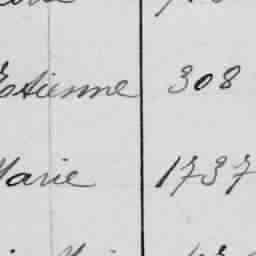 Estienne 308
Marie 1737